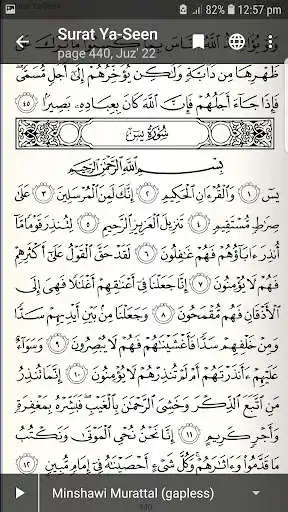 12:57 pm
Surat Ya-Seen
page 440, Juz' 22
وَلَوْ يُؤَاخِذُ ٱللَّهُ ٱلنَّاسَ بِمَا كَسَبُوا۟ مَا تَرَكَ عَلَىٰ
ظَهْرِهَا مِن دَآبَّةٍ وَلَٰكِن يُؤَخِّرُهُمْ إِلَىٰٓ أَجَلٍ مُّسَمًّى
فَإِذَا جَآءَ أَجَلُهُمْ فَإِنَّ ٱللَّهَ كَانَ بِعِبَادِهِۦ بَصِيرًۢا ٤٥
سُورَةُ يسٓ
بِسْمِ ٱللَّهِ ٱلرَّحْمَٰنِ ٱلرَّحِيمِ
يسٓ ١ وَٱلْقُرْءَانِ ٱلْحَكِيمِ ٢ إِنَّكَ لَمِنَ ٱلْمُرْسَلِينَ ٣ عَلَىٰ
صِرَٰطٍ مُّسْتَقِيمٍ ٤ تَنزِيلَ ٱلْعَزِيزِ ٱلرَّحِيمِ ٥ لِتُنذِرَ قَوْمًا مَّآ
أُنذِرَ ءَابَآؤُهُمْ فَهُمْ غَٰفِلُونَ ٦ لَقَدْ حَقَّ ٱلْقَوْلُ عَلَىٰٓ أَكْثَرِهِمْ
فَهُمْ لَا يُؤْمِنُونَ ٧ إِنَّا جَعَلْنَا فِىٓ أَعْنَٰقِهِمْ أَغْلَٰلًا فَهِىَ إِلَى
ٱلْأَذْقَانِ فَهُم مُّقْمَحُونَ ٨ وَجَعَلْنَا مِنۢ بَيْنِ أَيْدِيهِمْ سَدًّا
وَمِنْ خَلْفِهِمْ سَدًّا فَأَغْشَيْنَٰهُمْ فَهُمْ لَا يُبْصِرُونَ ٩ وَسَوَآءٌ
عَلَيْهِمْ ءَأَنذَرْتَهُمْ أَمْ لَمْ تُنذِرْهُمْ لَا يُؤْمِنُونَ ١٠ إِنَّمَا تُنذِرُ
مَنِ ٱتَّبَعَ ٱلذِّكْرَ وَخَشِىَ ٱلرَّحْمَٰنَ بِٱلْغَيْبِ فَبَشِّرْهُ بِمَغْفِرَةٍ
وَأَجْرٍ كَرِيمٍ ١١ إِنَّا نَحْنُ نُحْىِ ٱلْمَوْتَىٰ وَنَكْتُبُ
مَا قَدَّمُوا۟ وَءَاثَٰرَهُمْ وَكُلَّ شَىْءٍ أَحْصَيْنَٰهُ فِىٓ إِمَامٍ مُّبِينٍ ١٢
Minshawi Murattal (gapless)
440